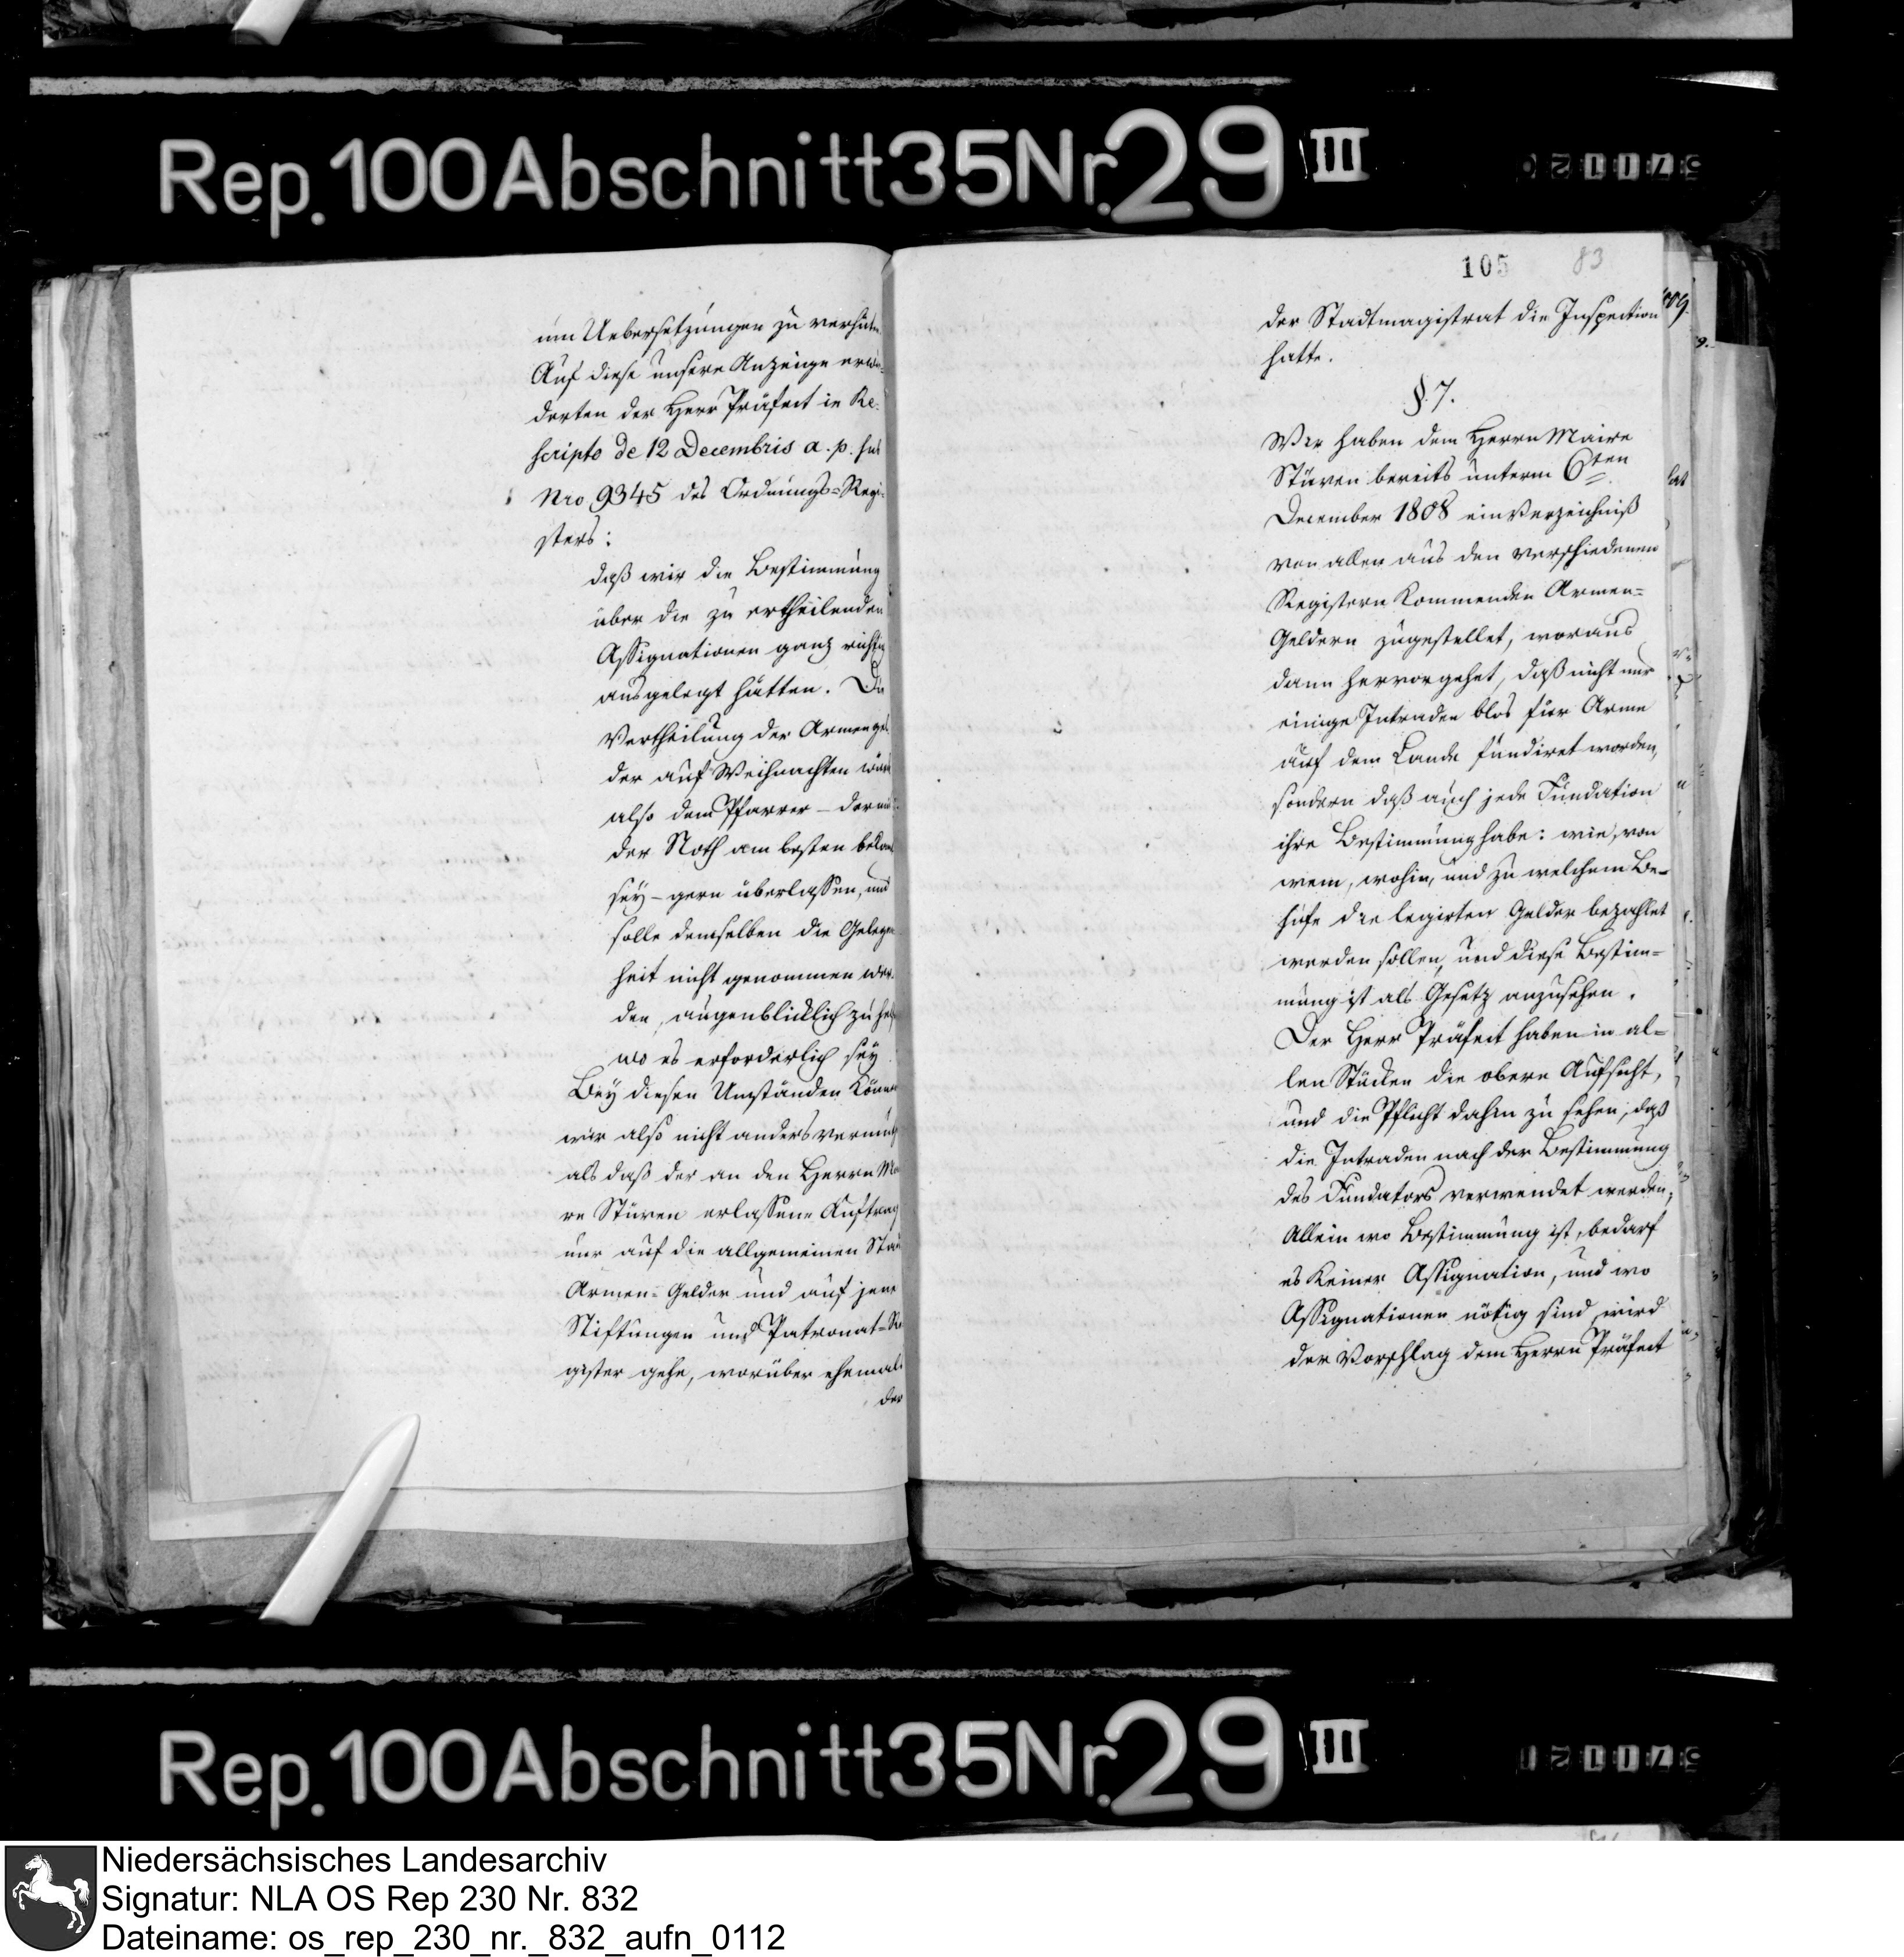 Rep. 100 Abschnitt 35 Nr. 29 III
um Uebersetzungen zu verhüten.
Auf diese unsere Anzeige erwie-
derten der Herr Präfect in Re-
scripto de 12 Decembris a. p. sub
Nro 9345 des Ordnungs-Regi-
sters:
daß wir die Bestimmung
über die zu ertheilenden
Assignationen ganz richtig
ausgelegt hätten. Die
Vertheilung der Armengel-
der auf Weihnachten würde
also dem Pfarrer – dem
der Noth am besten bekannt
sey – gern überlassen, und
solle demselben die Gelegen-
heit nicht genommen wer-
den, augenblicklich zu helfen
wo es erforderlich sey
Bey diesen Umständen können
wir also nicht anders
als daß der an den Herrn Mai-
re Stüven erlassene Auftrag
nur auf die allgemeinen Stadt
Armen-Gelder und auf jene
Stiftungen und Patronat-Re
gister gehe, worüber ehemals
der
105 83
der Stadtmagistrat die Inspection
hatte.
§. 7.
Wir haben dem Herrn Maire
Stüven bereits unterm 6ten
December 1808 ein Verzeichniß
von allen aus den verschiedenen
Registern kommenden Armen-
Geldern zugestellet, woraus
dann hervorgehet, daß nicht nur
einige Intraden blos für Arme
auf dem Lande fundiret worden,
sondern daß auch jede Fundation
ihre Bestimmung habe: wie, von
wem, wohin, und zu welchem Be-
hufe die legirten Gelder bezahlet
werden sollen, und diese Bestim-
mung ist als Gesetz anzusehen.
Der Herr Präfect haben in al-
len Stücken die obere Aufsicht,
und die Pflicht dahin zu sehen, daß
die Intraden nach der Bestimmung
des Fundators verwendet werden;
Allein wo Bestimmung ist, bedarf
es keiner Assignation, und wo
Assignationen nötig sind, wird
der Vorschlag dem Herrn Präfect
Rep. 100 Abschnitt 35 Nr. 29 III
Niedersächsisches Landesarchiv
Signatur: NLA OS Rep 230 Nr. 832
Dateiname: os_rep_230_nr._832_aufn_0112